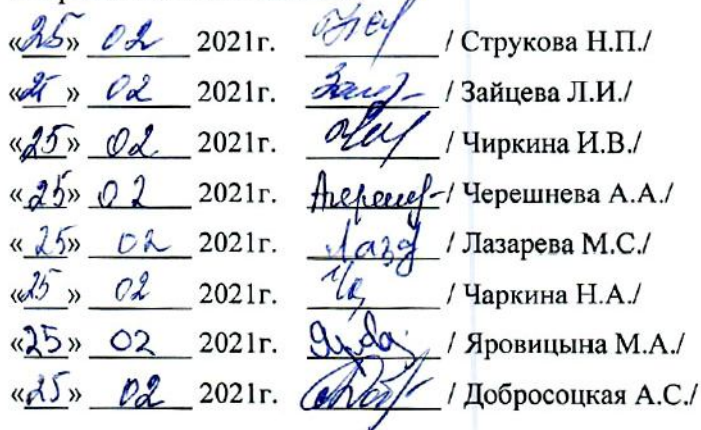 «25» 02 2021г. / Струкова Н.П./
«25» 02 2021г. / Зайцева Л.И./
«25» 02 2021г. / Чиркина И.В./
«25» 02 2021г. / Черешнева А.А./
«25» 02 2021г. / Лазарева М.С./
«25» 02 2021г. / Чаркина Н.А./
«25» 02 2021г. / Яровицына М.А./
«25» 02 2021г. / Добросоцкая А.С./